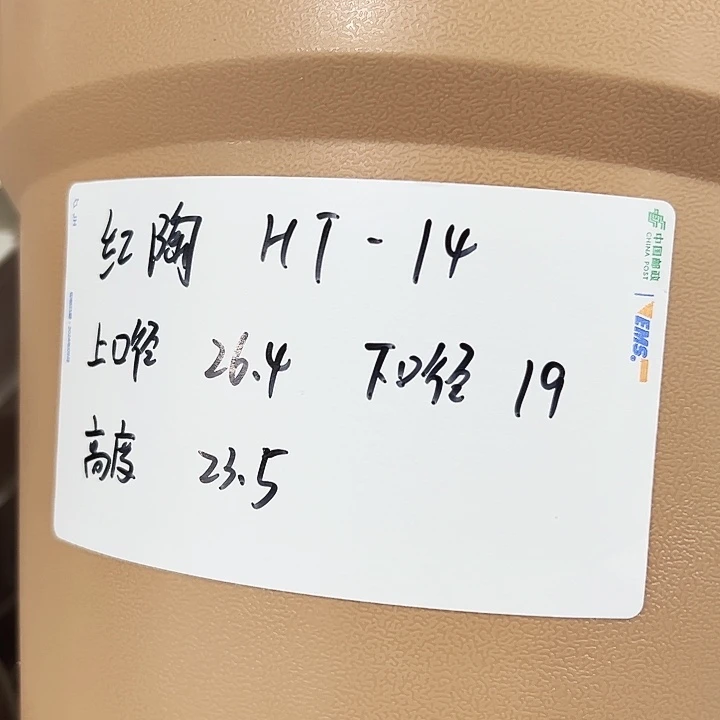 红陶 HT-14
上口径 26.4 下口径 19
高度 23.5
中国邮政
CHINA POST
EMS